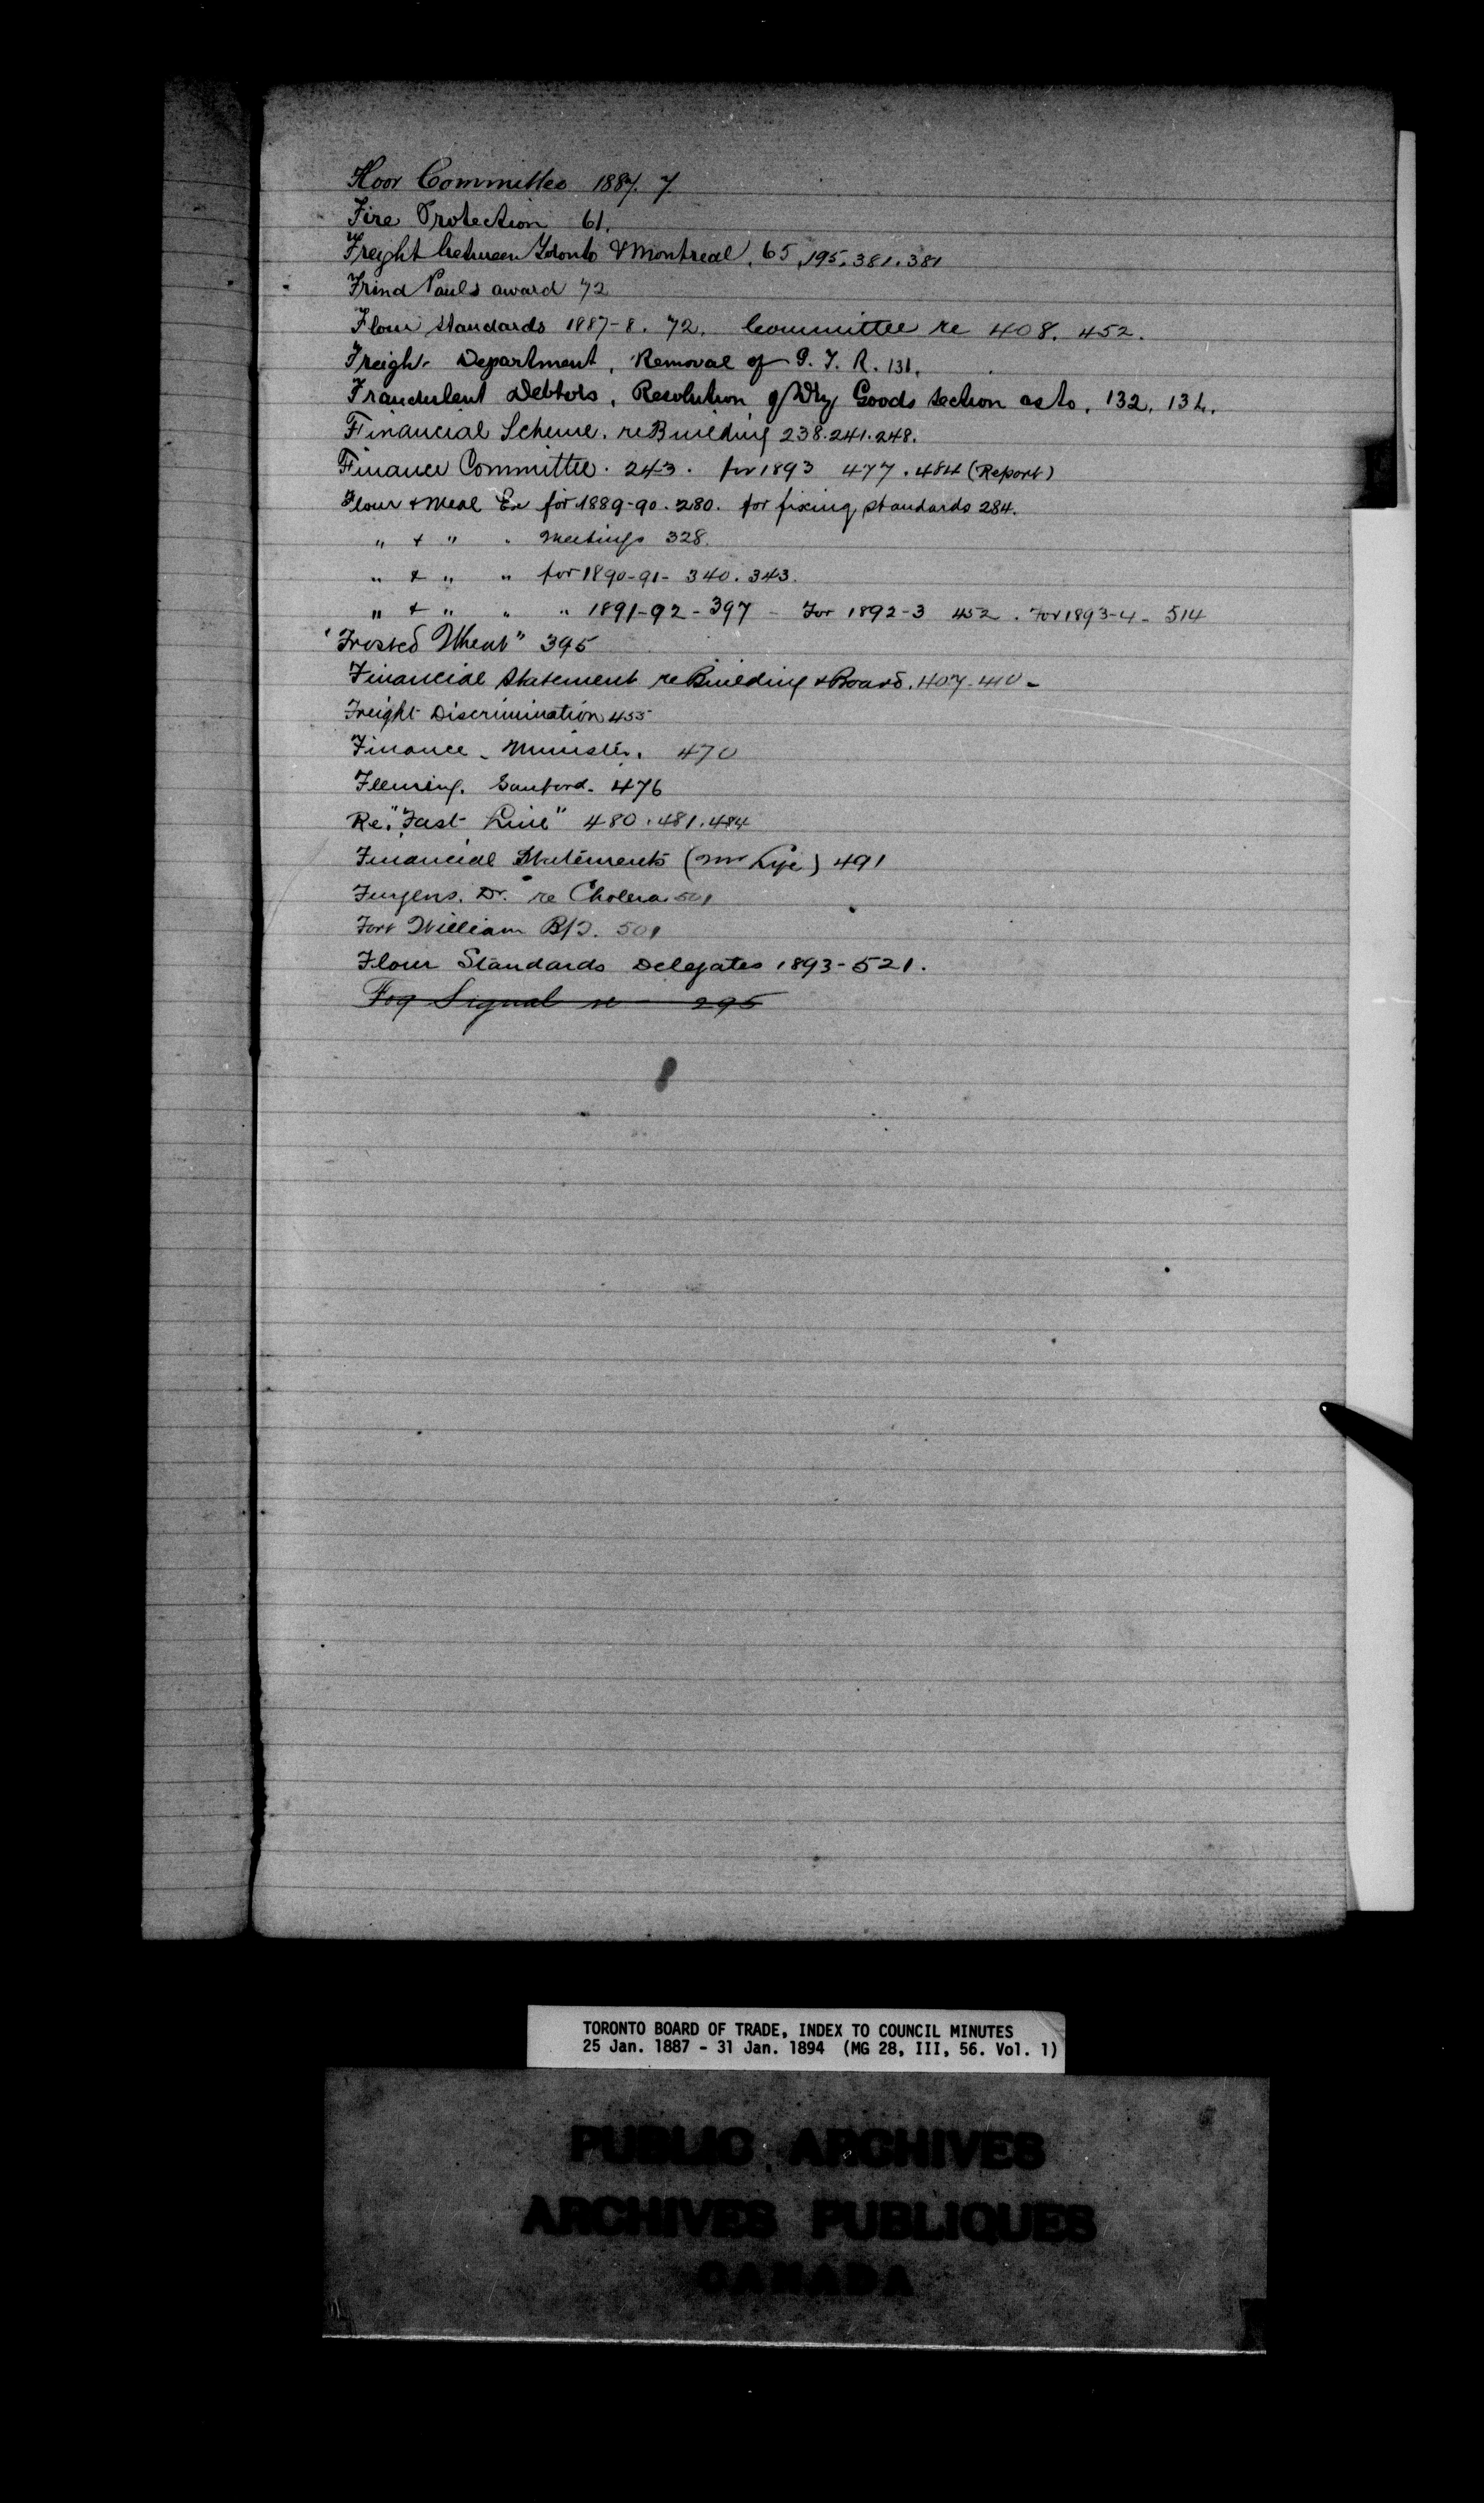 Floor Committee 1887. 7
Fire Protection 61.
Freight between Toronto & Montreal, 65, 195, 381. 381
Frind Pauls award 72
Flour Standards 1887-8. 72. Committee re 408. 452.
Freight Department, Removal of G. T. R. 131.
Fraudulent Debtors, Resolution of Dry Goods Section as to, 132, 134.
Financial Scheme. re Building 238. 241. 248.
Finance Committee. 243. for 1893 477. 484 (Report)
Flour & Meal Ex for 1889-90. 280. for fixing standards 284.
" & " " Meetings 328.
" & " " for 1890-91- 340. 343.
" & " " " 1891-92-397 - For 1892-3 452. For 1893-4- 514
"Frosted Wheat" 395
Financial Statement re Building & Board. 407-410-
Freight Discrimination 455
Finance Minister. 470
Fleming. Sanford. 476
Re. "Fast Line" 480. 481. 484
Financial Statements (Mr Lye) 491
Dr. re Cholera 501
Fort William B/T. 501
Flour Standards Delegates 1893-521.
Fog Signal re 295
TORONTO BOARD OF TRADE, INDEX TO COUNCIL MINUTES
25 Jan. 1887 - 31 Jan. 1894 (MG 28, III, 56. Vol. 1)
PUBLIC ARCHIVES
ARCHIVES PUBLIQUES
CANADA